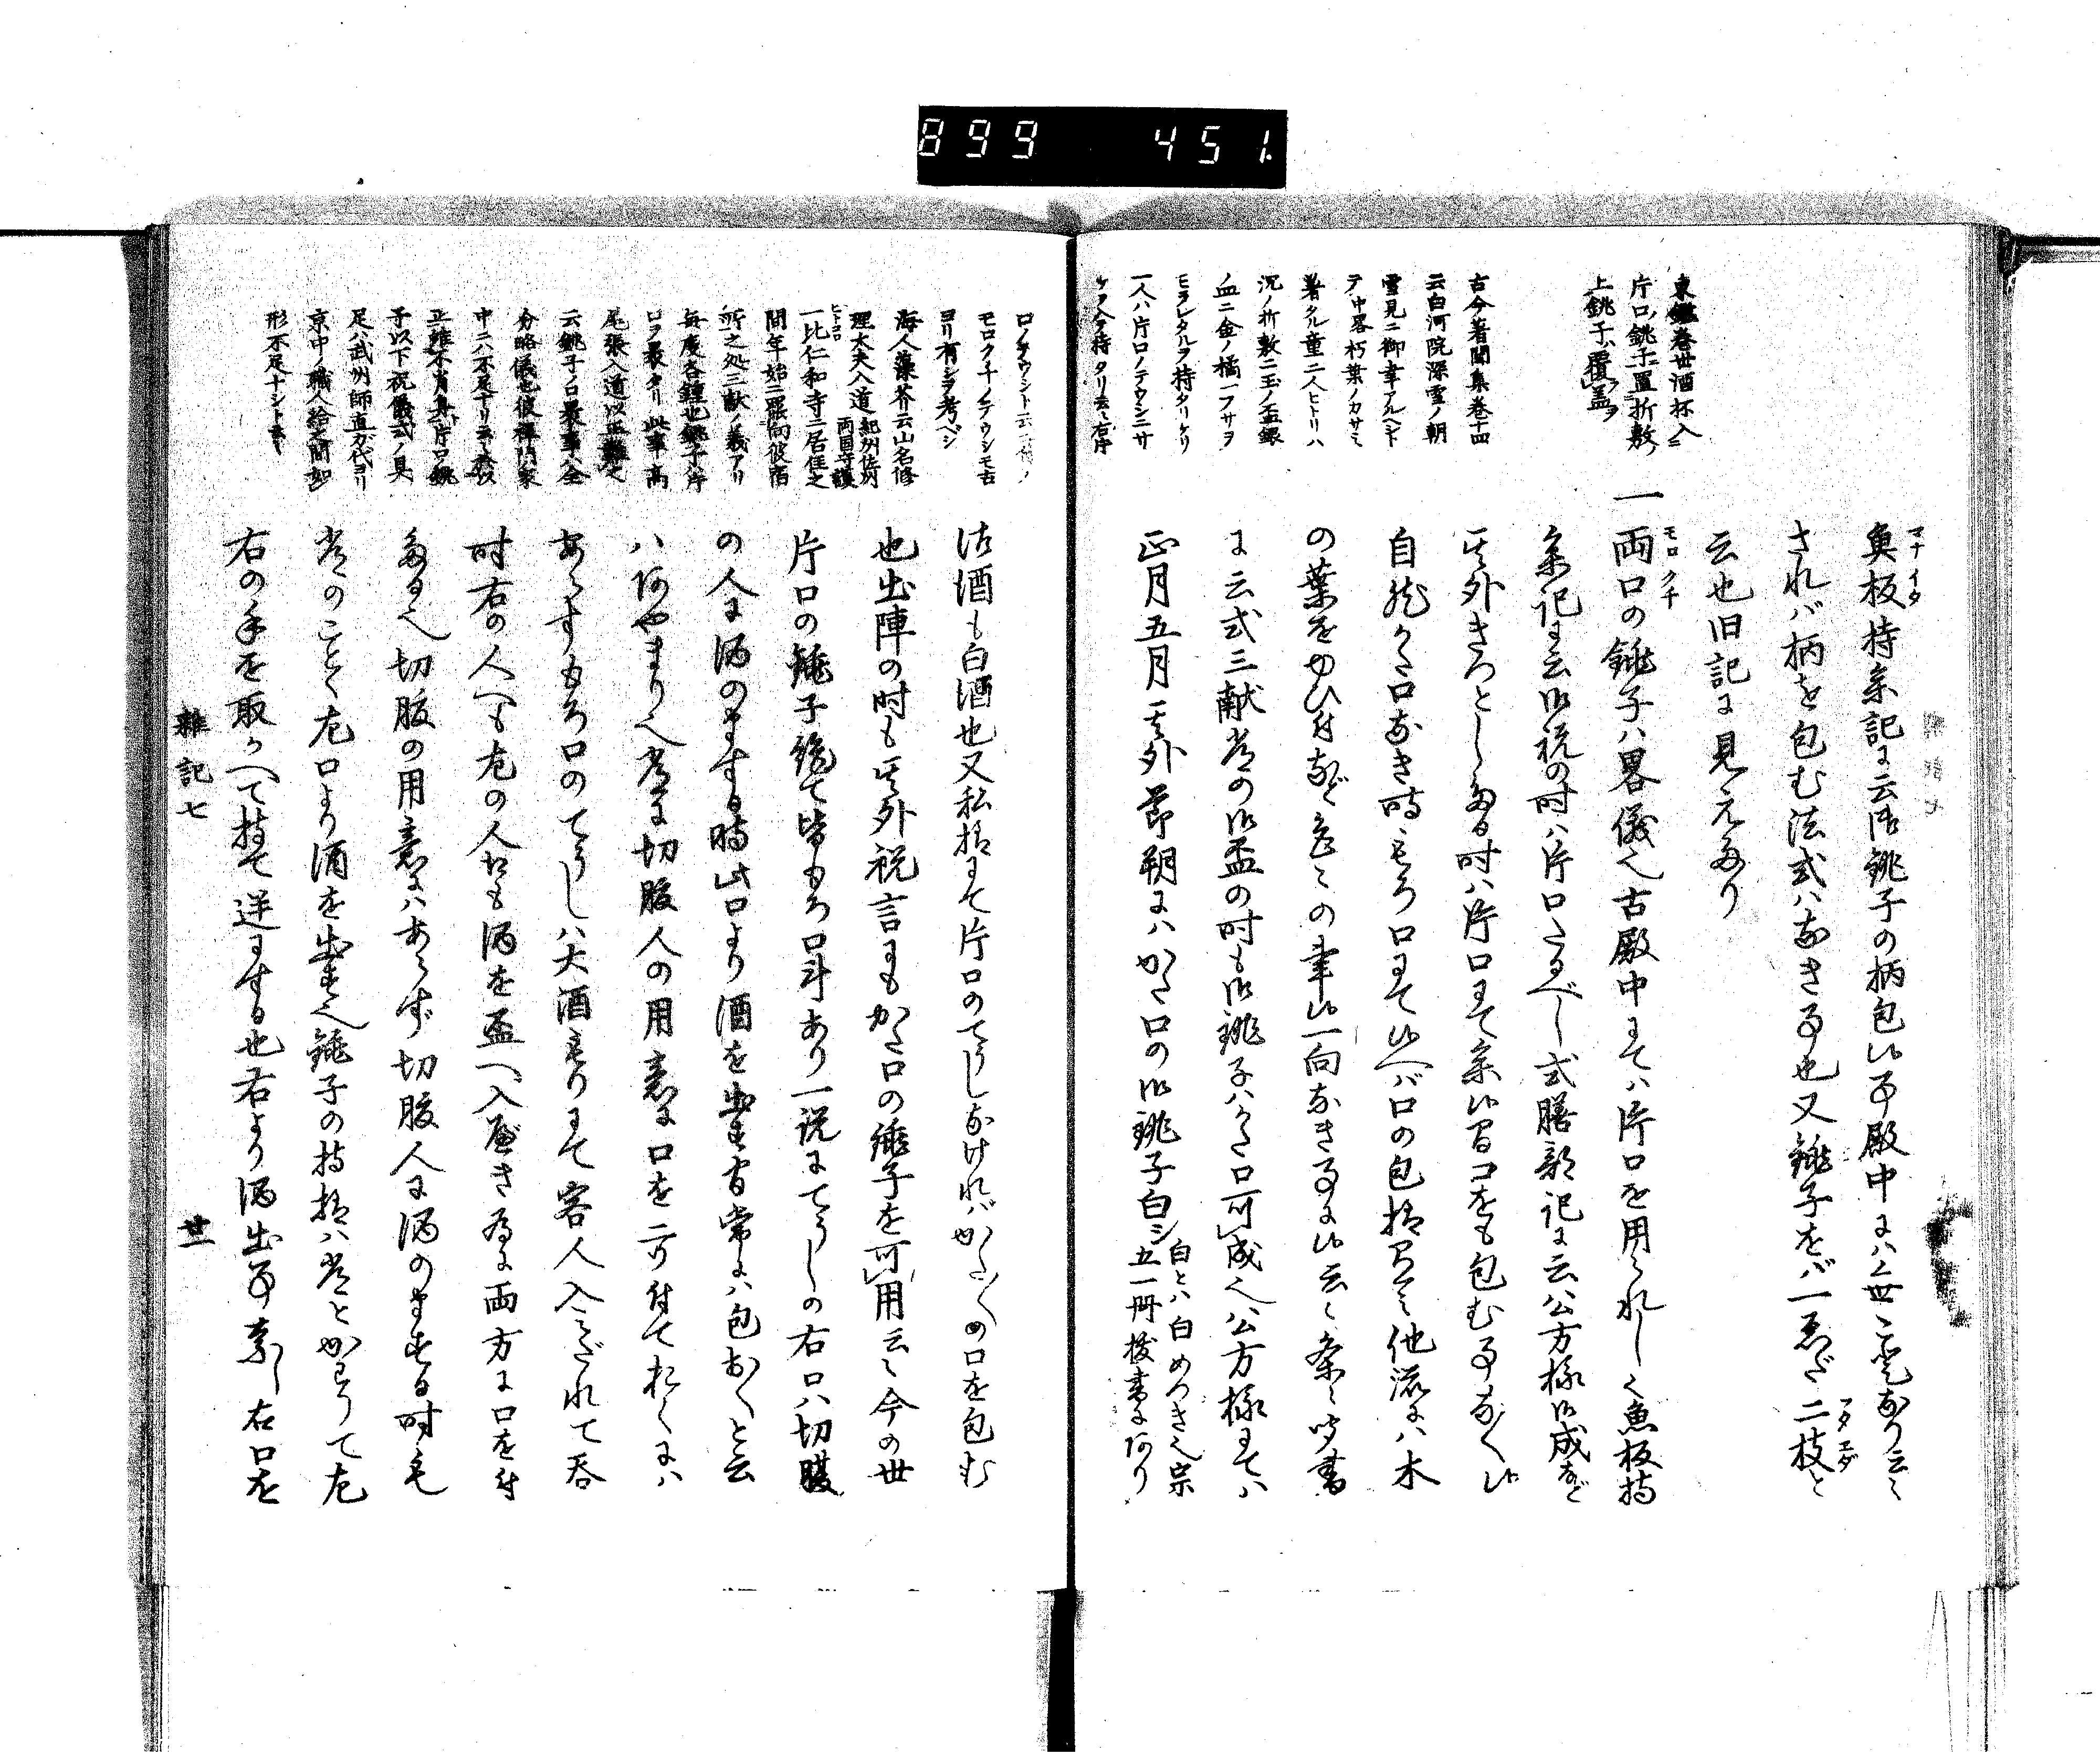 899 451
東鑑巻廿酒杯入ニ
片口ノ銚子ニ置折敷ノ
上銚子ニ覆盖ヲ
古今著聞集巻十四
云白河院深雪ノ朝
雪見ニ御幸アルヘシト
テ中畧朽葉ノカサミ
著タル童二人ヒトリハ
沉ノ折敷ニ玉ノ盃銀
ノ皿ニ金ノ橘一フサヲ
モラレタルヲ持タリケリ
一人ハ片口ノテウシニサ
ケヲ入テ持タリ云々
魚板持系記に云御銚子の柄包候事殿中にハ無
されバ柄を包む法式ハなき事也又銚子をバ一ゑだ二枝と
云也旧記に見えたり
一両口の銚子ハ畧儀也古殿中にてハ片口を用られし也魚板持
系記に云御祝の時ハ片口たるべし式膳部記に云公方様御成など
其外きつとしたる時ハ片口にて系候間口をも包む事なく候
自然かた口なき時もろ口にて候へバ口の包様
他流にハ木
の葉をゆひ付など色々の事候一向なき事に候云々条々聞書
に云式三献常の御盃の時も御銚子ハかた口可成也公方様にてハ
正月五月其外節朔にハかた口の御銚子白シ
白とハ白めつき也宗
五一冊抜書にあり
口ノテウシト云
モロクチノテウシモ古
ヨリ有シヲ考ベシ
海人藻芥云山名修
理大夫入道
紀州佐州
両国守護
一比仁和寺ニ居住之
間年始ニ罷向彼宿
所之処三献ノ義アリ
毎度各鍾也銚子片
口ヲ最タリ此事高
尾張入道以正難之
云銚子ノ口最事全
分略儀也彼禅門家
中ニハ不足ナリ云々
足ハ武州師直ガ代ヨリ
京中ノ職人給之間如
形不足ナシト云々
清酒も白酒也又私様にて片口のてうしなけれバかた〱の口を包む
也出陣の时も其外祝言にもかた口の銚子を可用云々今の世
片口の銚子絶て皆もろ口斗あり一説にてうしの右口ハ切腹
の人に酒のまする時此口より酒を出す常にハ包おくと云
ハあやまり也常に切腹人の用意に口を二ツ付ておくにハ
あらすもろ口のてうしハ大酒もりにて客人入みだれて呑
时右の人へも左の人にも酒を盃へ入べき為に両方に口を付
たる也切腹の用意にハあらず切腹人に酒のまする时も
常のことく左口より酒を出す也銚子の持様ハ常とかわりて左
右の手を取かへて持て逆にする也右より酒出事なし右口を
雑記七
廿一